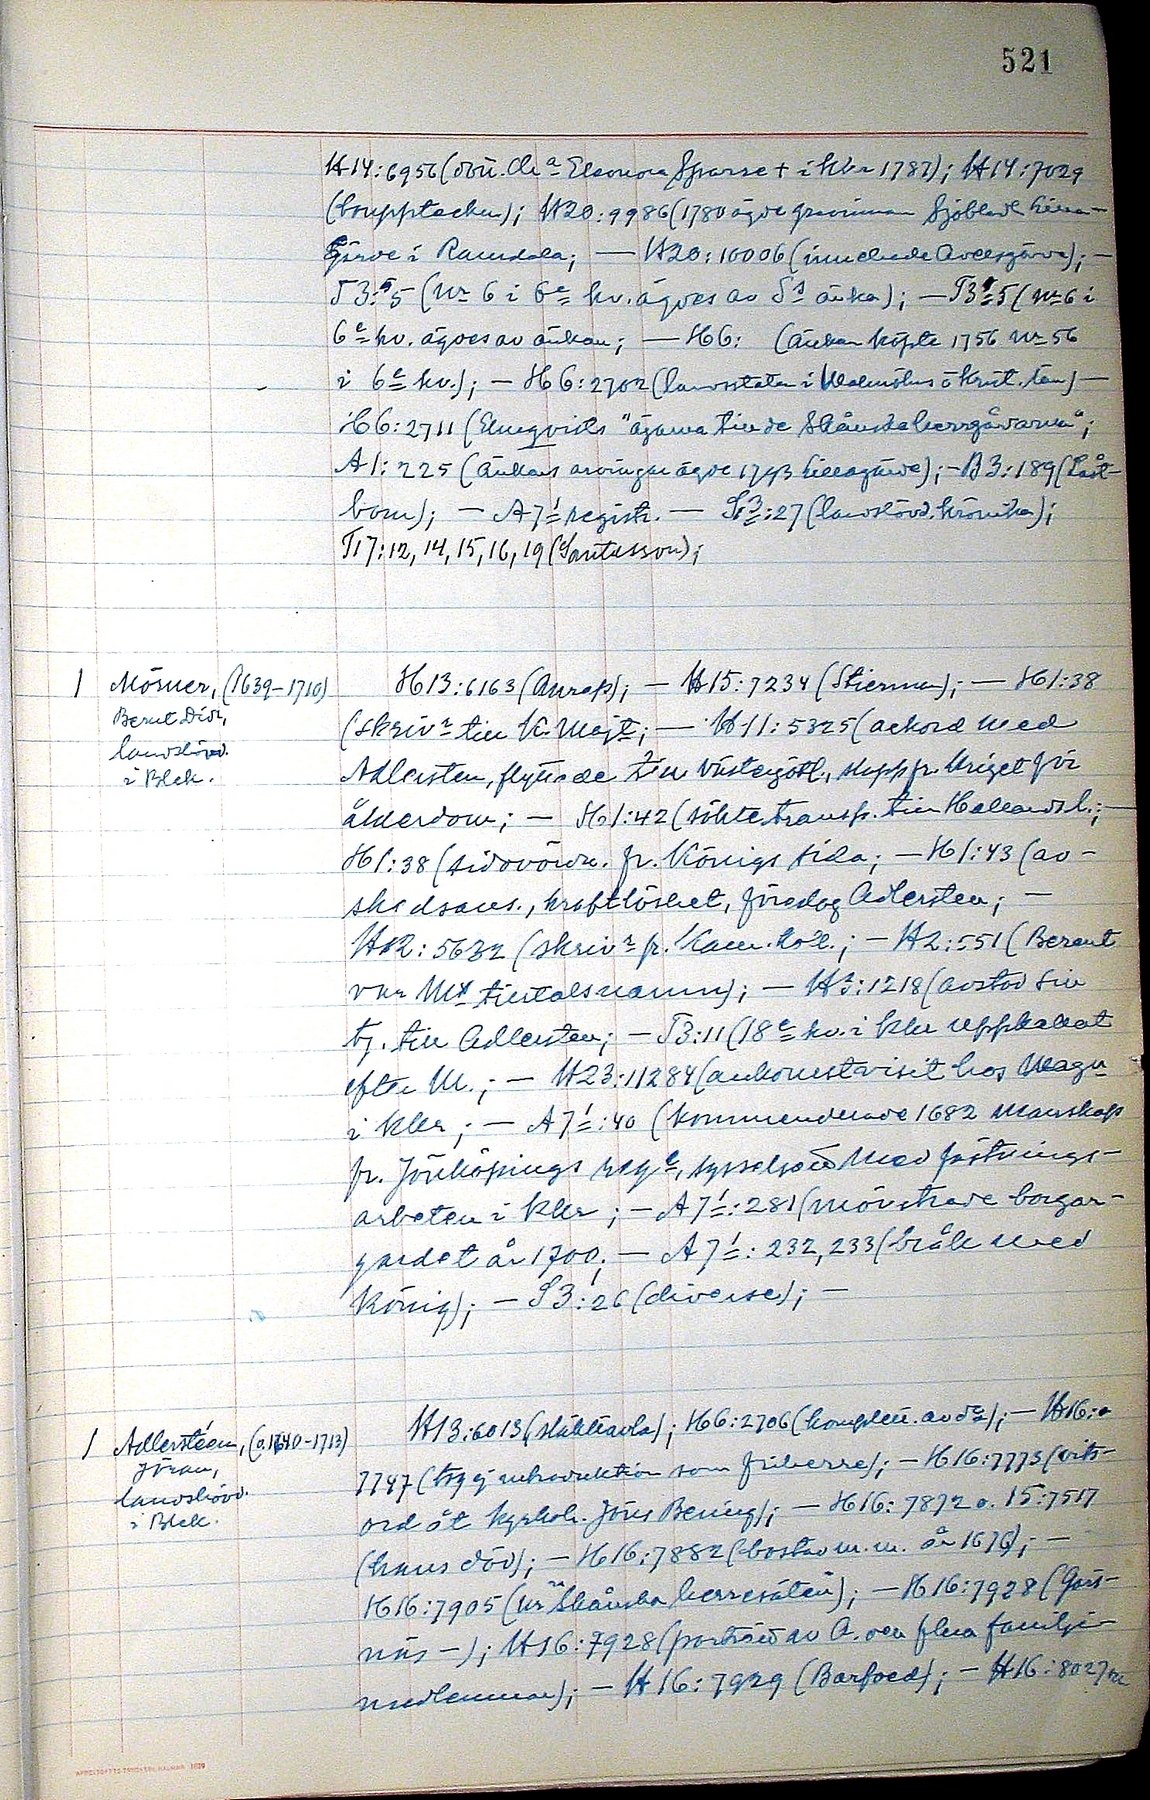 521
H14:6956 (dött. Chr.a Eleonora Sparre † i Kkr 1787); H14:7029
(bouppteckn); H20:9986 (1780 ägde grevinnan Sjöblad Lilla-
gärde i Ramdala; — H20:10006 (innehade Avelsgärde); —
T3:5 (No 6 i 6e kv. ägdes av Ss änka); — T3:5 (No 6 i
6e kv. ägdes av änkan; — H6: (änkan köpte 1756 No 56
i 6e kv.); — H6:2702 (landsstaten i Malmöhus o Krist. län) —
H6:2711 (Elmqvists "ägarna till de Skånska herrgårdarna";
A1:225 (änkans arvingar ägde 1793 Lillagärde); — B3:189 (Låst-
bom); — A7¹ registr. — S3:27 (landshövd. krönika);
T17:12, 14, 15, 16, 19 (Santesson);
1 Mörner, (1639–1710) H13:6163 (Anrep); — H15:7234 (Stierman); — H1:38
Bernt Didr, (skriv.r till K. Majt; — H11:5325 (ackord med
landshövd. Adlersten, flyttade till Västergötl., slapp fr. kriget för
i Blek. ålderdom; — H1:42 (sökte transp. till Hallands l.; —
H1:38 (sidovördn. fr. Königs sida; — H1:43 (av-
skedsans., kraftlöshet, föreslog Adlersten; —
H12:5632 (skriv.r fr. Kam. koll.; — H2:551 (Berent
var Ms tilltalsnamn); — H3:1218 (avstod sin
tj. till Adlersten; — T3:11 (18e kv. i Kkr uppkallat
efter M.; — H23:11284 (ankomstvisit hos Magn
i Kkr; — A7¹:40 (kommenderade 1682 manskap
fr. Jönköpings reg:e, sysselsatt med fästnings-
arbeten i Kkr; — A7¹:281 (mönstrade borgar-
gardet år 1700; — A7¹:232, 233 (bråk med
König); — S3:26 (diverse); —
1 Adlersteen, (o. 1640–1713) H13:6013 (släkttavla); H6:2706 (komplett. av do); — H16:
Jöran, 7747 (tog ej introduktion som friherre); — H16:7773 (vits-
landshövd. ord åt kyrkoh. Jöns Bening); — H16:7872 o. 15:7517
i Blek. (hans död); — H16:7882 (bostad m.m. år 1676); —
H16:7905 (ur "Skånska herresäten"); — H16:7928 (Görs-
näs —); H16:7928 (porträtt av A. och flera familje-
medlemmar); — H16:7929 (Barfoed); — H16:8027